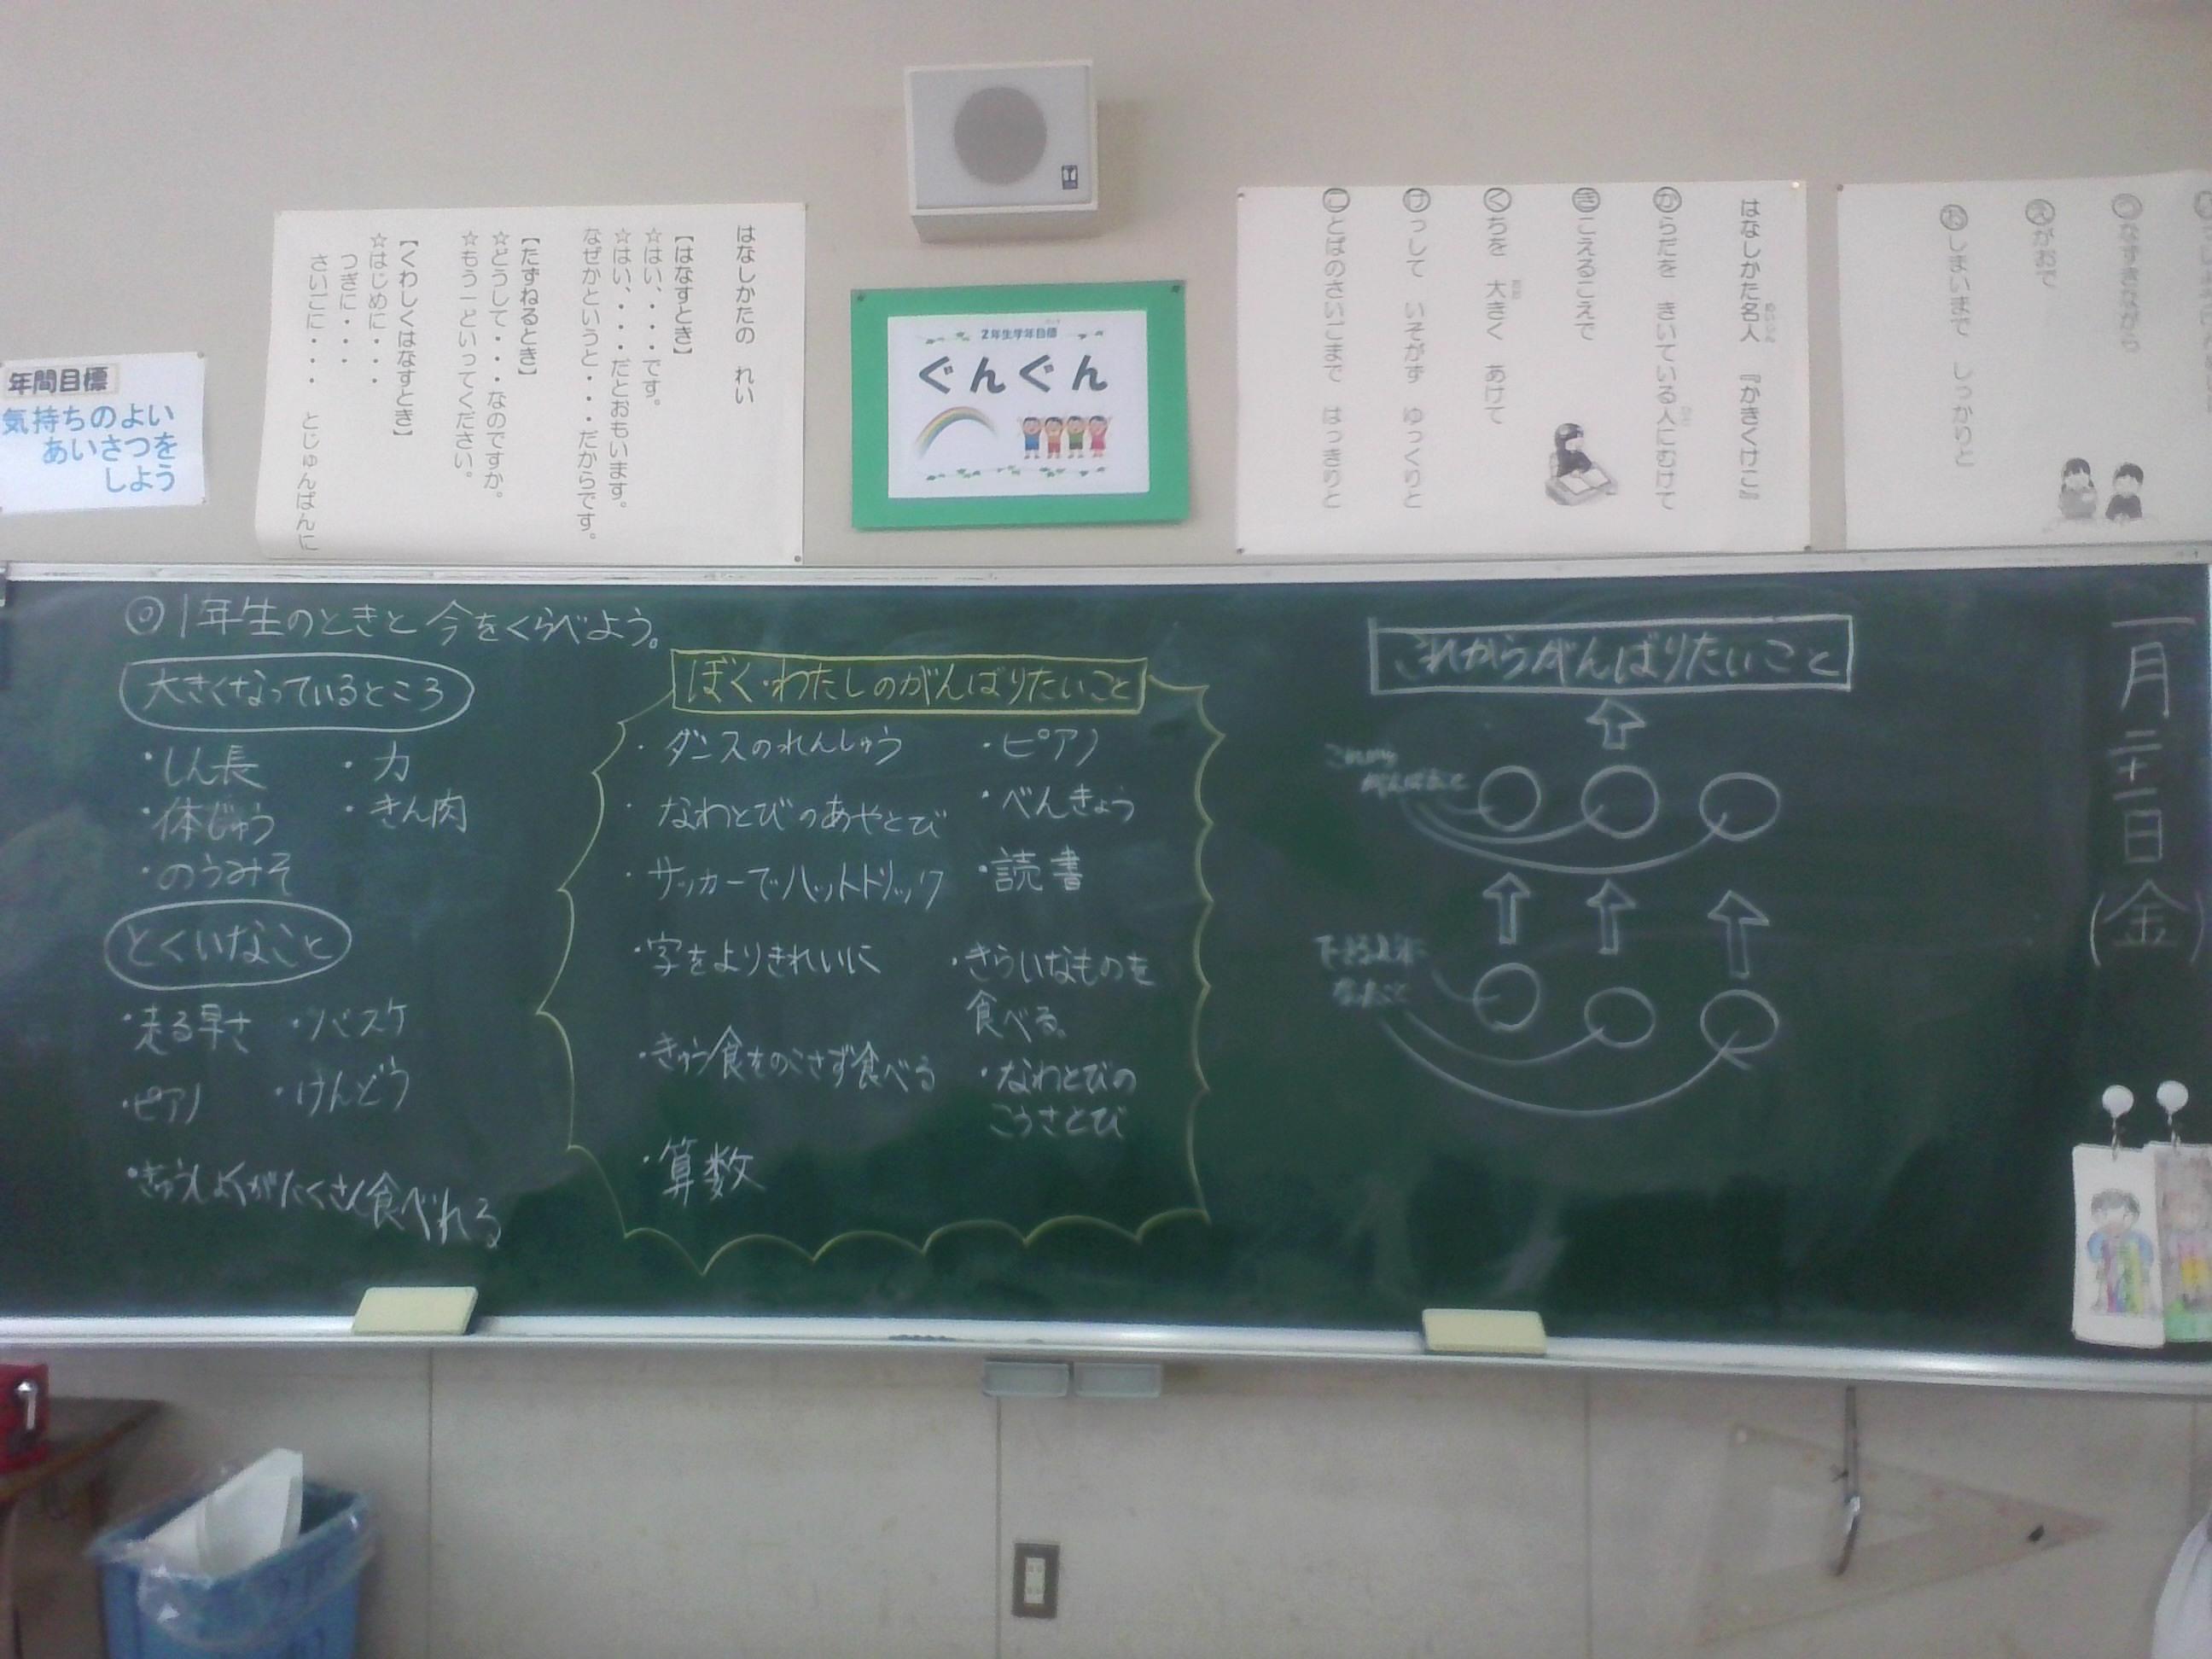 年間目標
気持ちのよい
あいさつを
しよう
はなしかたの れい
【はなすとき】
☆はい、・・・です。
☆はい、・・・だとおもいます。
なぜかというと・・・だからです。
【たずねるとき】
☆どうして・・・なのですか。
☆もう一どいってください。
【くわしくはなすとき】
☆はじめに・・・
つぎに・・・
さいごに・・・ とじゅんばんに
2年生学年目標
ぐんぐん
はなしかた名人 『かきくけこ』
からだを きいている人にむけて
きこえるこえで
くちを 大きく あけて
けっして いそがず ゆっくりと
ことばのさいごまで はっきりと
うなずきながら
えがおで
おしまいまで しっかりと
一月二十一日(金)
◎1年生のときと今をくらべよう。
大きくなっているところ
・しん長
・体じゅう
・のうみそ
・力
・きん肉
とくいなこと
・走る早さ
・バスケ
・ピアノ
・けんどう
・きゅうしょくがたくさん食べれる
ぼく・わたしのがんばりたいこと
・ダンスのれんしゅう
・なわとびのあやとび
・サッカーでハットトリック
・字をよりきれいに
・きゅう食をのこさず食べる
・算数
・ピアノ
・べんきょう
・読書
・きらいなものを
食べる。
・なわとびの
こうさとび
これからがんばりたいこと
これから
がんばること